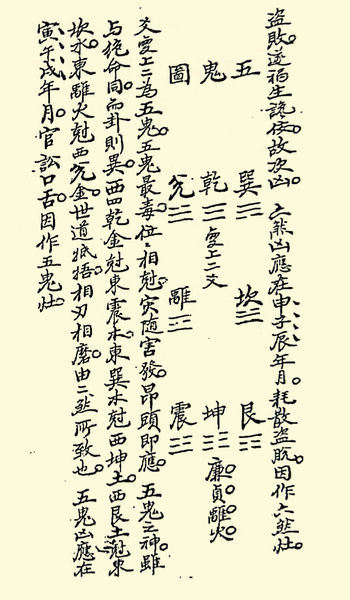 盜敗逆福生故次凶。六煞凶應在申子辰年月。耗散盜脫。因作六煞灶。
五 巽☴ 坎☵ 艮☶
鬼 乾☰ 變上二爻 坤☷ 廉貞離火
圖 兌☱ 離☲ 震☳
爻變上二為五鬼。五鬼最毒。位〻相尅。灾隨害發。昂頭即應。 五鬼之神。雖
与絕命同。而卦則異。西四乾金尅東震木。東巽木尅西坤土。西艮土尅東
坎水。東離火尅西兌金。世道抵捂。相刃相磨。由二煞所致也。 五鬼凶應在
寅午戌年月。官訟口舌。因作五鬼灶。